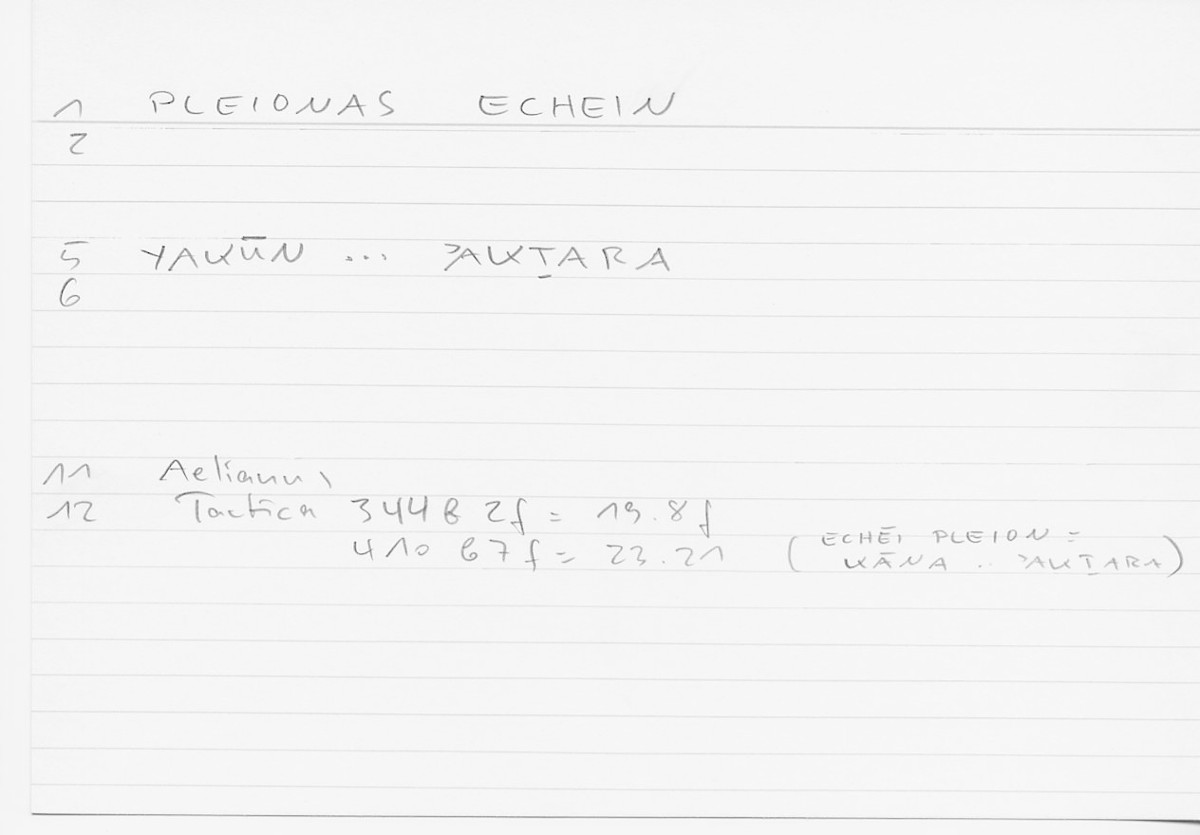 1 PLEIONAS ECHEIN
2
5 YAKŪN ... ʾAKṮARA
6
11 Aelianus
12 Tactica 344 b 2f = 19.8f
410 b 7f = 23.21 (ECHĒi PLEION =
KĀNA .. ʾAKṮARA)